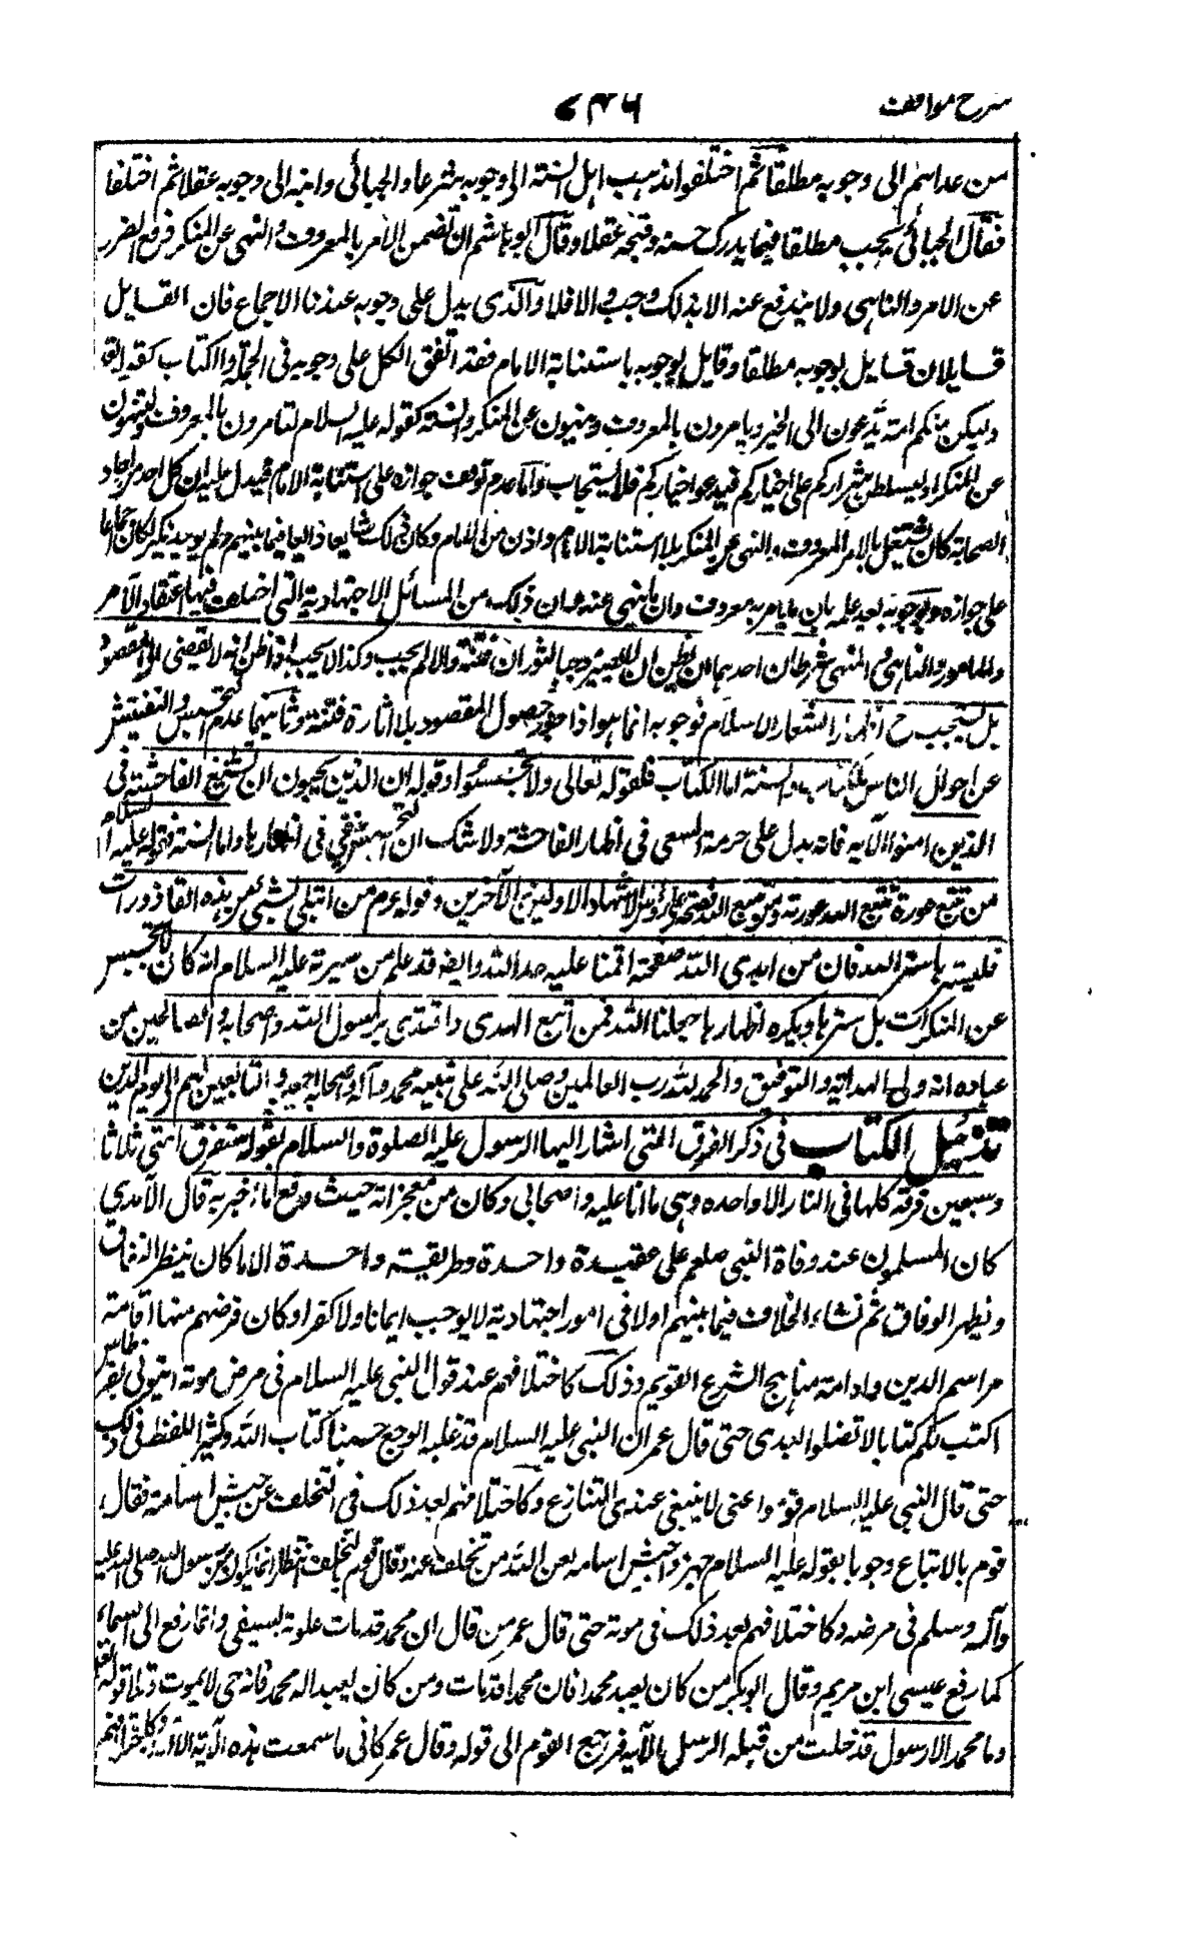 شرح مواقف ۷۴۶
من عداهم الى وجوبه مطلقا ثم اختلفوا فذهب اهل السنة الى وجوبه شرعا والجبائی وابنه الى وجوبه عقلا ثم اختلفا
فقال الجبائی یجب مطلقا فیما یدرك حسنه وقبحه عقلا وقال ابو هاشم ان تضمن الامر بالمعروف والنهی عن المنكر دفع الضرر
عن الامر والناهی ولا یندفع عنه الا بذلك وجب والا فلا والذی یدل على وجوبه عندنا الاجماع فان القایل
قایلان قایل بوجوبه مطلقا وقایل بوجوبه باستنابة الامام فقد اتفق الكل على وجوبه فی الجملة والكتاب كقوله تعا
ولیكن منكم امة یدعون الى الخیر ویامرون بالمعروف وینهون عن المنكر والسنة كقوله علیه السلام لتامرون بالمعروف ولتنهون
عن المنكر او لیسلطن شراركم على خیاركم فیدعو خیاركم فلا یستجاب واما عدم توقف جوازه على استنابة الامام فیدل علیه ان كل احد من احاد
الصحابة كان یشتغل بالامر بالمعروف والنهی عن المنكر بلا استنابة الامام واذن من الامام وكان ذلك شایعا ذایعا فیما بینهم ولم یوجد نكیر فكان اجماعا
على جوازه ووجوبه بعد علمه بان مایامر به معروف وان ماینهى عنه وان ذلك من المسائل الاجتهادیة التی اختلف فیها اعتقاد الآمر
والمامور والناهی والمنهی شرطان احدهما ان یظن ان لا یصیر موجبا لثوران فتنة والا لم یجب وكذا لا یجب اذا ظن انه لا یفضی الى المقصود
بل یستجب ح اظهارا لشعار الاسلام فوجوبه انما هو اذا جوز حصول المقصود بلا اثارة فتنة وثانیهما عدم التجسس والتفتیش
عن احوال الناس للكتاب والسنة اما الكتاب فلقوله تعالى ولا تجسسوا وقوله ان الذین یحبون ان تشیع الفاحشة فی
الذین امنوا الآیه فانه یدل على حرمة السعی فی اظهار الفاحشة ولا شك ان التجسس سعی فی اظهارها واما السنة فقوله علیه السلام
من تتبع عورة تتبع الله عورته ومن تتبع الله فضحه على رؤس الاشهاد الاولین والآخرین وقوله عم من ابتلى بشیئ من هذه القاذورات
فلیستر باستر الله فان من ابدى الله صفحته اقمنا علیه حد الله وایضه قد علم من سیرته علیه السلام انه كان لایتجسس
عن المنكرات بل یسترها ویكره اظهارها جعلنا الله فمن اتبع الهدى واقتدى برسول الله واصحابه والصالحین من
عباده انه ولی الهدایة والتوفیق والحمد لله رب العالمین وصلى الله على نبیه محمد وآله واصحابه اجمعین والتابعین لهم الى یوم الدین
تذییل الكتاب فی ذكر الفرق التی اشار الیها الرسول علیه الصلوة والسلام بقوله ستفرق امتی ثلاثا
وسبعین فرقة كلها فی النار الا واحده وهی ما انا علیه واصحابی وكان من معجزاته حیث وقع ما اخبر به قال الآمدی
كان المسلمون عند وفاة النبی صلعم على عقیدة واحدة وطریقیة واحدة الا ما كان یبظن النفاق
ویظهر الوفاق ثم نشاء الخلاف فیما بینهم اولا فی امور اجتهادیة لا یوجب ایمانا ولا كفرا وكان فرضهم منها اقامة
مراسم الدین وادامة مناهج الشرع القویم وذلك كاختلافهم عند قول النبی علیه السلام فی مرض موته ایتونی بقرطاس
اكتب لكم كتابا لا تضلوا بعدی حتى قال عمر ان النبی علیه السلام قد غلبه الوجع حسبنا كتاب الله وكثر اللغط فی ذلك
حتى قال النبی علیه السلام قوموا عنی لا ینبغی عندی التنازع وكاختلافهم بعد ذلك فی التخلف عن جیش اسامة فقال
قوم بالاتباع وجوبا بقوله علیه السلام جهزوا جیش اسامه لعن الله من تخلف عنه وقال قوم بالتخلف انتظارا لما یكون من رسول الله صلى الله علیه
وآله وسلم فی مرضه وكاختلافهم بعد ذلك فی موته حتى قال عمر من قال ان محمد قد مات علوته بسیفی وانما رفع الى السماء
كما رفع عیسى ابن مریم وقال ابو بكر من كان یعبد محمدا فان محمدا قد مات ومن كان یعبد اله محمد فانه حی لا یموت وتلا قوله تعالى
وما محمد الا رسول قد خلت من قبله الرسل الآیه فرجع القوم الى قوله وقال عمر كانی ما سمعت هذه الآیة الا الآن وكاختلافهم